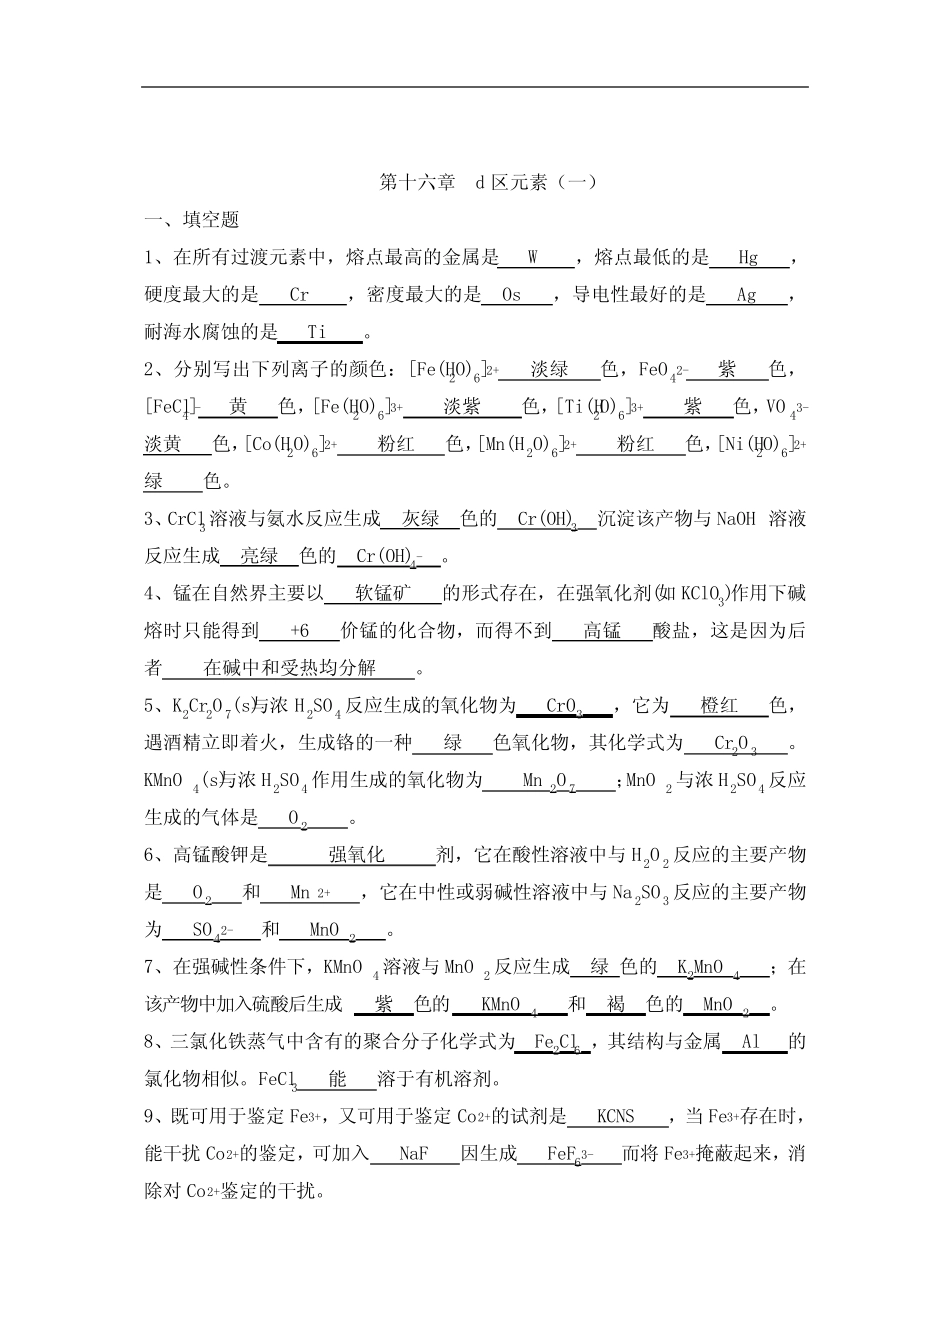 第十六章 d 区元素（一）
一、填空题
1、在所有过渡元素中，熔点最高的金属是 W ，熔点最低的是 Hg ，
硬度最大的是 Cr ，密度最大的是 Os ，导电性最好的是 Ag ，
耐海水腐蚀的是 Ti 。
2、分别写出下列离子的颜色：[Fe(H2O)6]2+ 淡绿 色，FeO42- 紫 色，
[FeCl4]- 黄 色，[Fe(H2O)6]3+ 淡紫 色，[Ti(H2O)6]3+ 紫 色，VO43-
淡黄 色，[Co(H2O)6]2+ 粉红 色，[Mn(H2O)6]2+ 粉红 色，[Ni(H2O)6]2+
绿 色。
3、CrCl3溶液与氨水反应生成 灰绿 色的 Cr(OH)3 沉淀该产物与 NaOH 溶液
反应生成 亮绿 色的 Cr(OH)4- 。
4、锰在自然界主要以 软锰矿 的形式存在，在强氧化剂(如 KClO3)作用下碱
熔时只能得到 +6 价锰的化合物，而得不到 高锰 酸盐，这是因为后
者 在碱中和受热均分解 。
5、K2Cr2O7(s)与浓 H2SO4反应生成的氧化物为 CrO3 ，它为 橙红 色，
遇酒精立即着火，生成铬的一种 绿 色氧化物，其化学式为 Cr2O3 。
KMnO4(s)与浓 H2SO4作用生成的氧化物为 Mn2O7 ；MnO2与浓 H2SO4反应
生成的气体是 O2 。
6、高锰酸钾是 强氧化 剂，它在酸性溶液中与 H2O2反应的主要产物
是 O2 和 Mn2+ ，它在中性或弱碱性溶液中与 Na2SO3反应的主要产物
为 SO42- 和 MnO2 。
7、在强碱性条件下，KMnO4溶液与 MnO2反应生成 绿 色的 K2MnO4 ；在
该产物中加入硫酸后生成 紫 色的 KMnO4 和 褐 色的 MnO2 。
8、三氯化铁蒸气中含有的聚合分子化学式为 Fe2Cl6 ，其结构与金属 Al 的
氯化物相似。FeCl3 能 溶于有机溶剂。
9、既可用于鉴定 Fe3+，又可用于鉴定 Co2+的试剂是 KCNS ，当 Fe3+存在时，
能干扰 Co2+的鉴定，可加入 NaF 因生成 FeF63- 而将 Fe3+掩蔽起来，消
除对 Co2+鉴定的干扰。